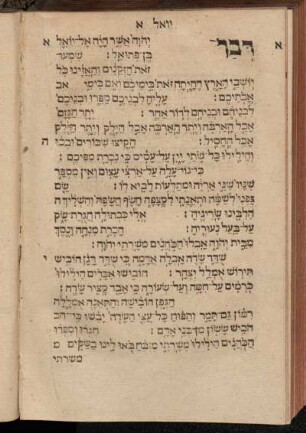 יואל א
דבר יהוה אשר היה אל יואל
בן פתואל : שמעו
זאת הזקנים והאזינו כל
יושבי הארץ ההיתה זאת בימיכם ואם בימי
אבתיכם : עליה לבניכם ספרו ובניכם
לבניהם ובניהם לדור אחר : יתר הגזם
אכל הארבה ויתר הארבה אכל הילק ויתר הילק
אכל החסיל : הקיצו שכורים ובכו
והילילו כל שתי יין על עסיס כי נכרת מפיכם :
כי גוי עלה על ארצי עצום ואין מספר
שניו שני אריה ומתלעות לביא לו : שם
גפני לשמה ותאנתי לקצפה חשף חשפה והשליך
הלבינו שריגיה : אלי כבתולה חגרת שק
על בעל נעוריה : הכרת מנחה ונסך
מבית יהוה אבלו הכהנים משרתי יהוה :
שדד שדה אבלה אדמה כי שדד דגן הוביש
תירוש אמלל יצהר : הבישו אכרים הילילו
כרמים על חטה ועל שערה כי אבד קציר שדה :
הגפן הובישה והתאנה אמללה
רמון גם תמר ותפוח כל עצי השדה יבשו כי הב
הביש ששון מן בני אדם : חגרו וספדו
הכהנים הילילו משרתי מזבח באו לינו בשקים
משרתי